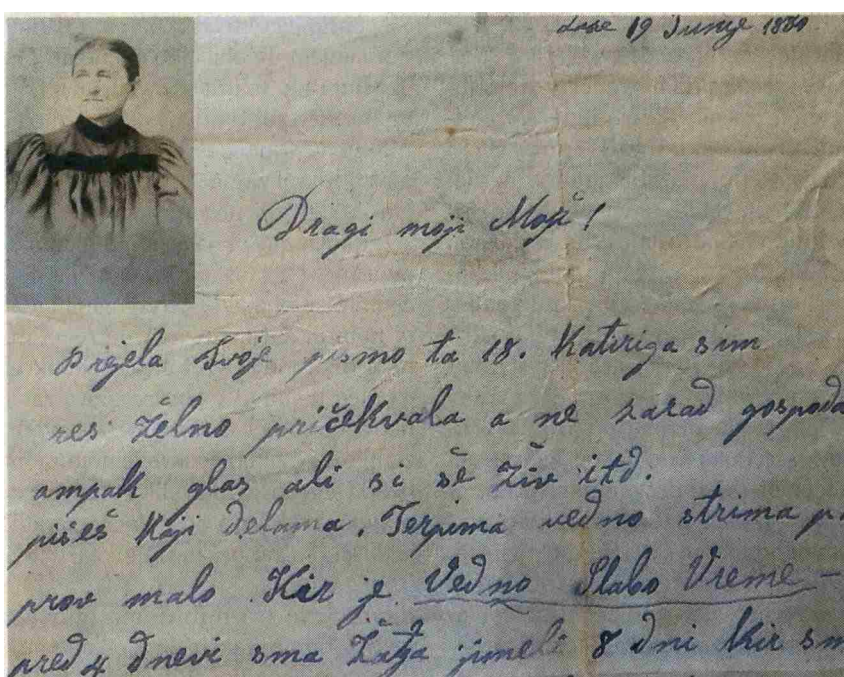 19 Junije
Dragi moji Mož!
Prijela Tvoje pismo ta 18. Katiriga sim
res želno pričekvala a ne zarad gospoda
ampak glas ali si še živ itd.
pišeš Kaji delama. Terpima vedno strima
prov malo Kir je Vedno Slabo Vreme –
pred 4 dnevi sma Žága jimeli 8 dni kir sm